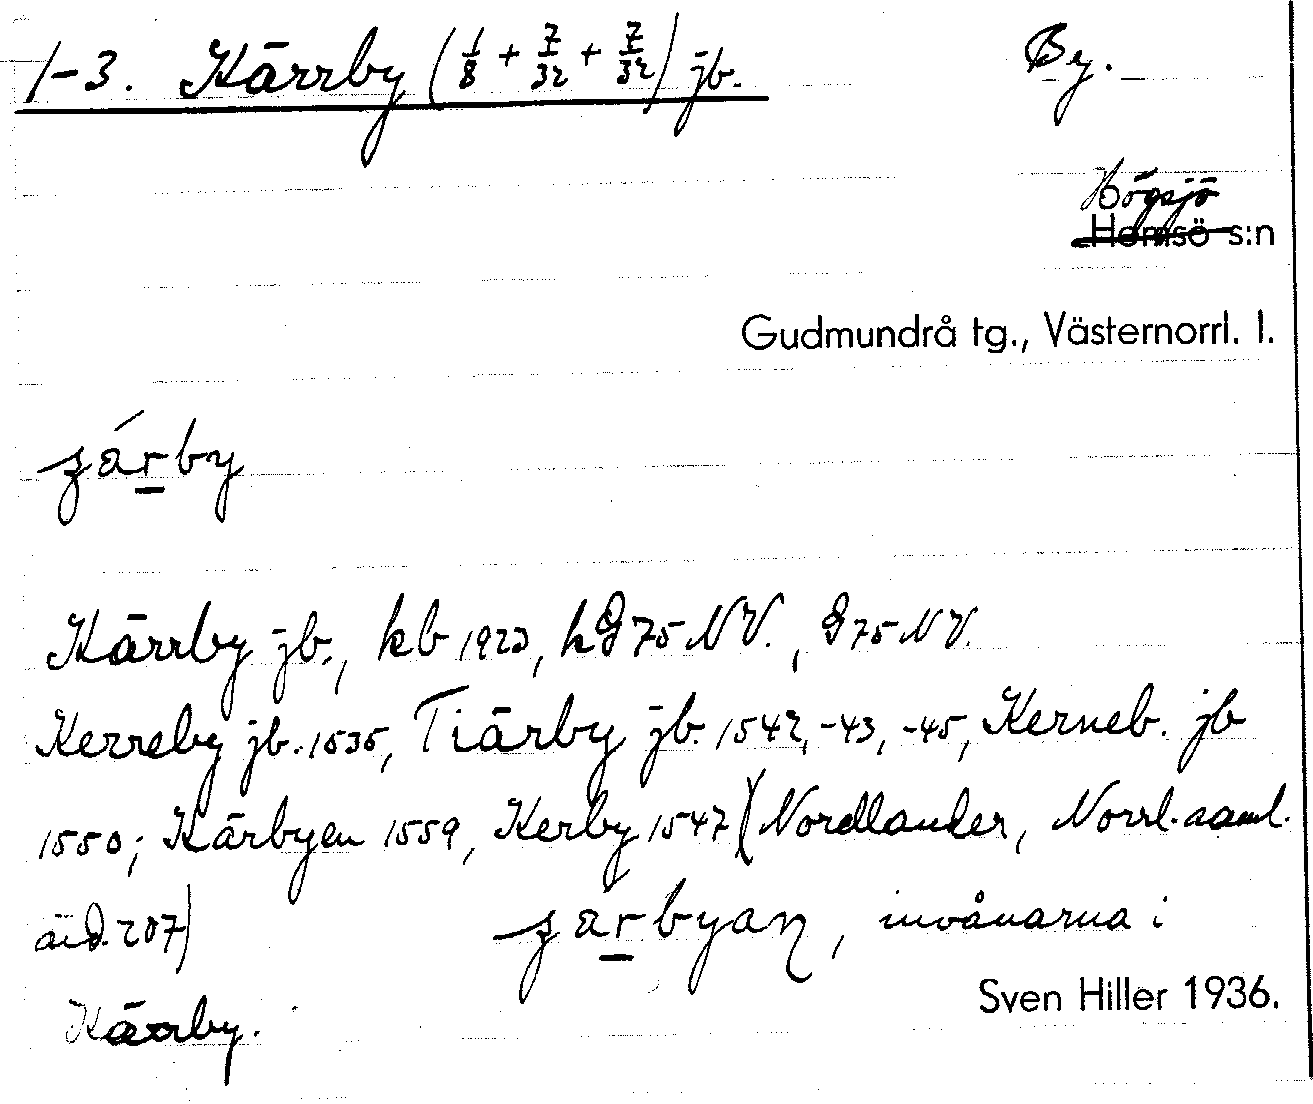 1-3. Kärrby (1/8 + 7/32 + 7/32) jb. By.
Högsjö
Hemsö s:n
Gudmundrå tg., Västernorrl. l.
Kärrby jb., kb 1923, kG 75 NV., G 75 NV.
Kerreby jb. 1535, Tiärby jb. 1542, -43, -45, Kerneb. jb
1550; Kärbyen 1559, Kerby 1547 (Nordlander, Norrl. saml.
207) invånarna i
Sven Hiller 1936.
Kärrby.